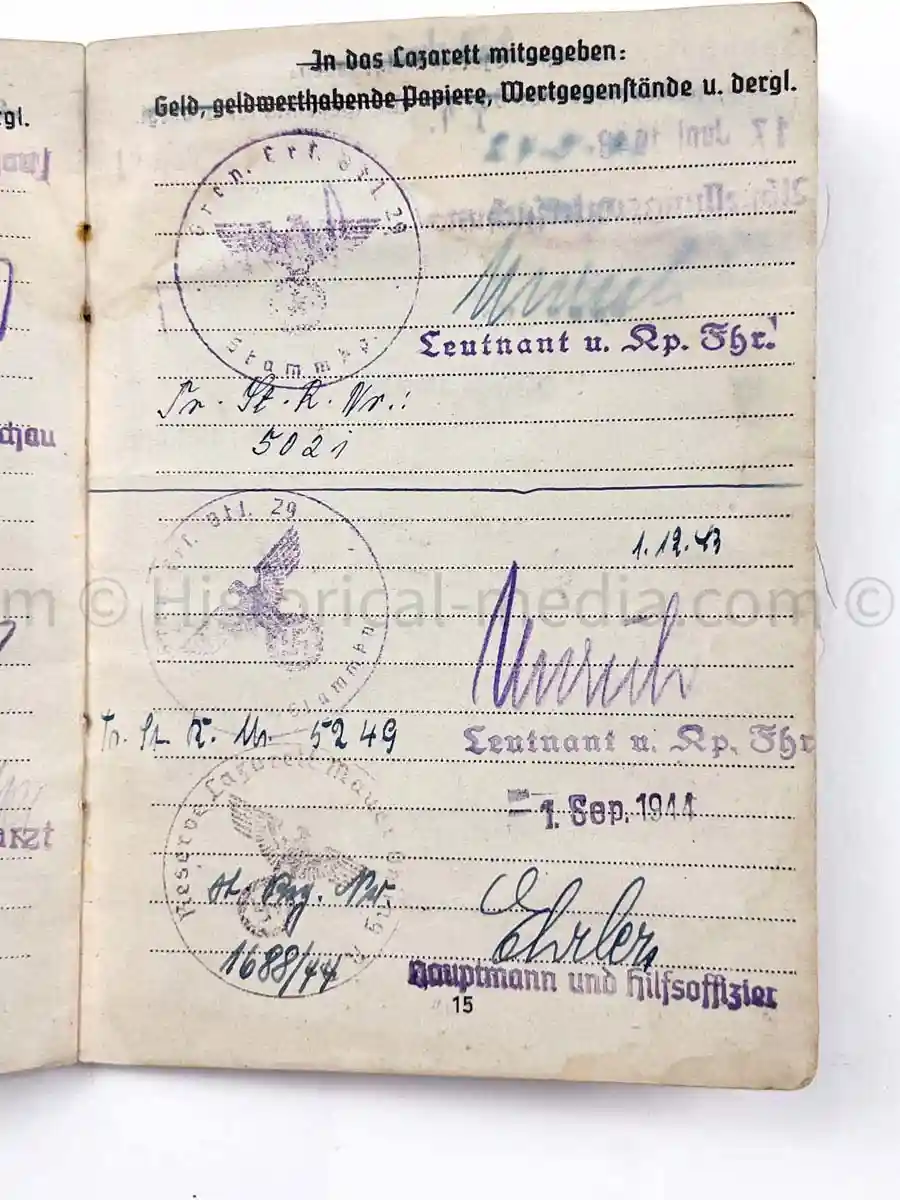 In das Lazarett mitgegeben:
Geld, geldwerthabende Papiere, Wertgegenstände u. dergl.
rgl.
17. Juni 1943
Gren. Ers. Btl. 29
Stammkp.
Leutnant u. Kp. Fhr.
Tr. St. K. Nr.:
5021
chau
Ers. Btl. 29
Stammkp.
1.12.43
m © Historical-media.com ©
Tr. St. K. Nr. 5249
Leutnant u. Kp. Fhr
Reserve Lazarett Mauer
- 1. Sep. 1944
arzt
1688/44
Ehrler
Hauptmann und Hilfsoffizier
15